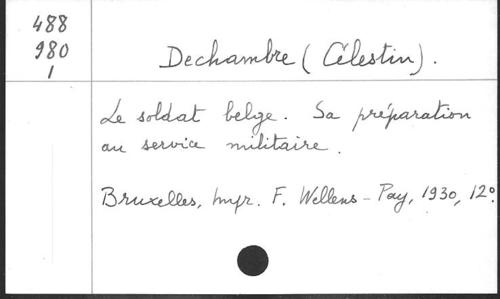 488
980
1
Dechambre (Célestin).
Le soldat belge. Sa préparation
au service militaire.
Bruxelles, Impr. F. Wellens-Pay, 1930, 12°.